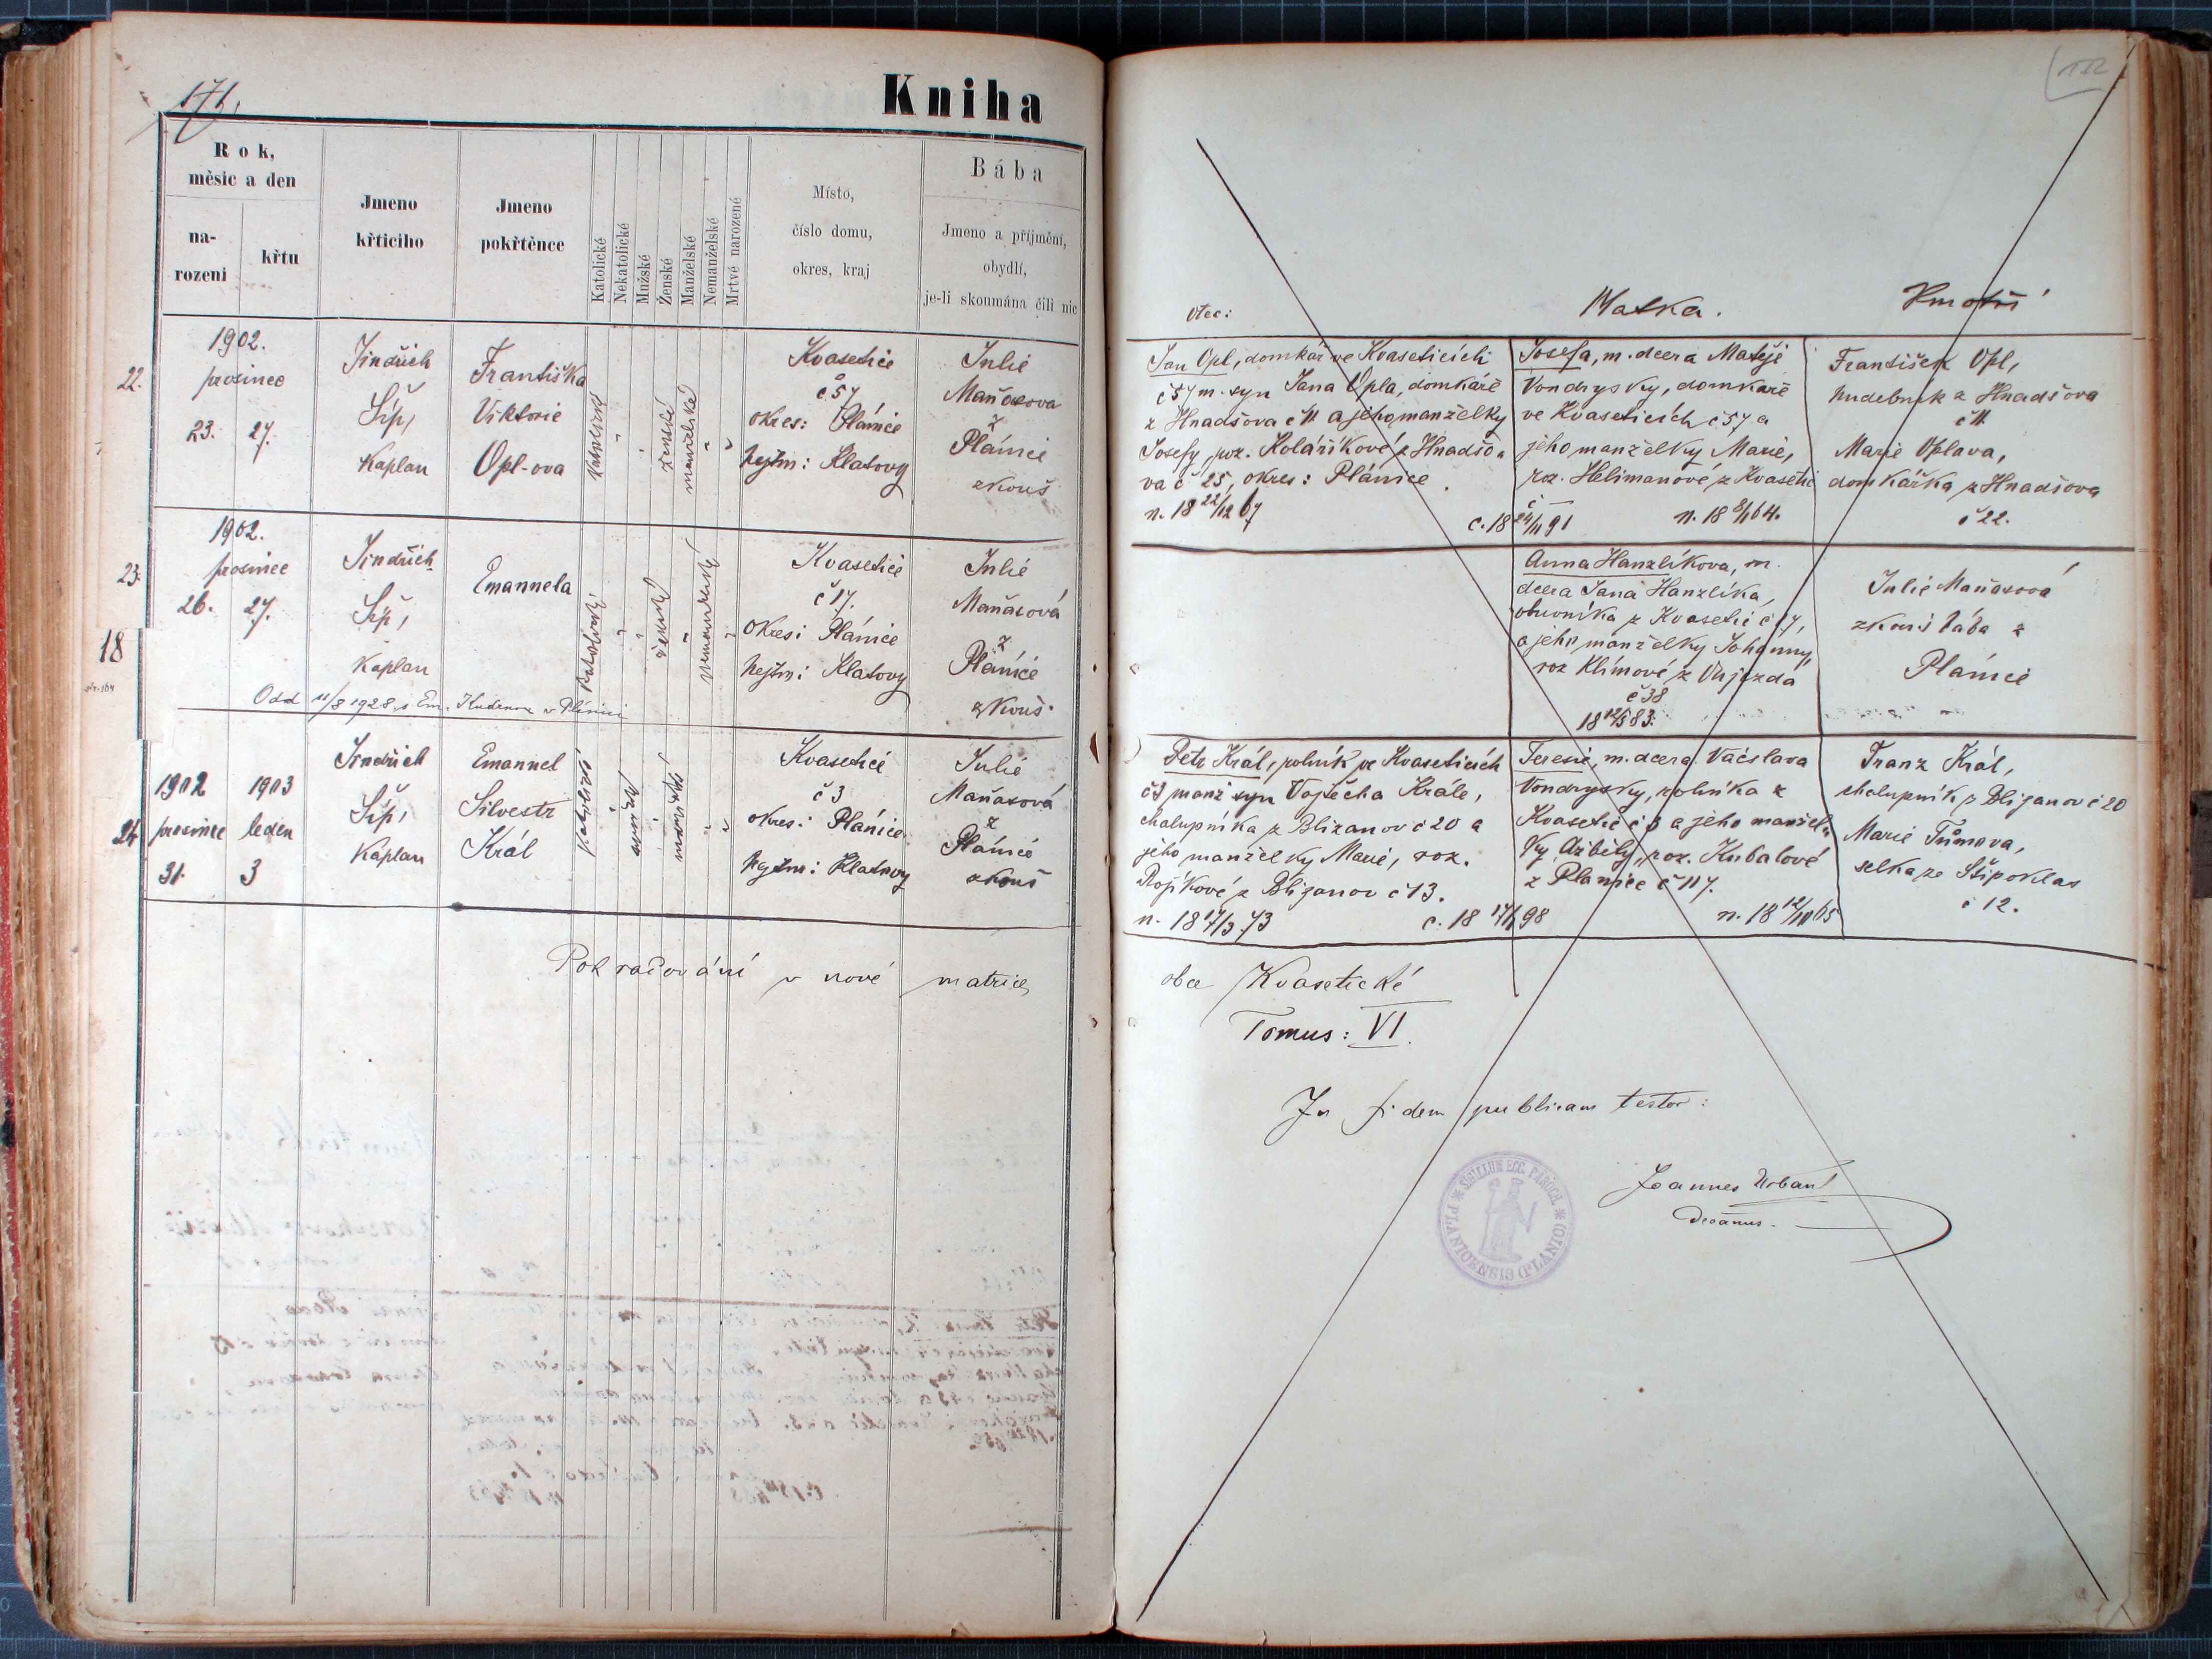 171.
Kniha
Rok,
měsíc a den
na-
rozeni
křtu
Jmeno
křtícího
Jmeno
pokřtěnce
Katolické
Nekatolické
Mužské
Ženské
Manželské
Nemanželské
Mrtvé narozené
Místo,
číslo domu,
okres, kraj
Bába
Jmeno a příjmění,
obydlí,
je-li skoumána čili nic
22.
1902.
prosinec
23. 27.
Jindřich
Šíp,
Kaplan
Františka
Viktorie
Opl-ova
katolické
ženské
manželské
Kvasetice
č 57
okres: Plánice
hejtm: Klatovy
Julie
Maňasova
z
Plánice
zkouš
23.
1902.
prosinec
26. 27.
Jindřich
Šíp,
Kaplan
Emanuela
katolické
ženské
nemanželské
Kvasetice
č 17.
Okres: Plánice
hejtm: Klatovy
Julie
Maňasová
z
Plánice
zkouš.
18
str. 164
Odd 11/8 1928 s Em. v Plánici
24
1902 1903
prosinec leden
31. 3
Jindřich
Šíp,
Kaplan
Emanuel
Silvestr
Král
katolické
mužské
manželské
Kvasetice
č 3
okres: Plánice
hejtm: Klatovy
Julie
Maňasová
z
Plánice
zkouš
Pokračování v nové matrice
otec:
Matka.
Kmotři
Jan Opl, domkář ve Kvaseticích
č 57 m. syn Jana Opla, domkáře
z Hnadšova č 11 a jeho manželky
Josefy, roz. Kolaříkové z Hnadšo-
va č 25, okres: Plánice.
n. 18 22/12 67
c. 18 24/11 91
Josefa, m. dcera Matěje
Vondrysky, domkáře
ve Kvaseticích č 57 a
jeho manželky Marie,
roz. Helimanové z Kvasetic
č —
n. 18 8/1 64.
František Opl,
hudebník z Hnadšova
č 11.
Marie Oplova,
domkářka z Hnadšova
č 22.
Anna Hanzlíkova, m.
dcera Jana Hanzlíka,
obuvníka z Kvasetic č 17,
a jeho manželky Johanny,
roz Klímové z Oujezda
č 38
18 12/5 83.
Julie Maňasová
zkouš bába z
Plánice
Petr Král, rolník ve Kvaseticích
č 3 manž syn Vojtěcha Krále,
chalupníka z Blizanov č 20 a
jeho manželky Marie, roz.
Rojíkové z Blizanov č 13.
n. 18 17/3 73
c. 18 17/1 98
Teresie, m. dcera Václava
Vondrysky, rolníka z
Kvasetic č 3 a jeho manžel-
ky Alžběty, roz. Kubalové
z Planice č 117.
n. 18 12/10 65
Franz Král,
chalupník z Blizanov č 20
Marie Tůmova,
selka ze Štipoklas
č 12.
obce Kvasetické
Tomus: VI.
In fidem publicam testor:
SIGILLUM ECC. PAROCH. PLANICENSIS (PLANIC)
Joannes Urban
Decanus.